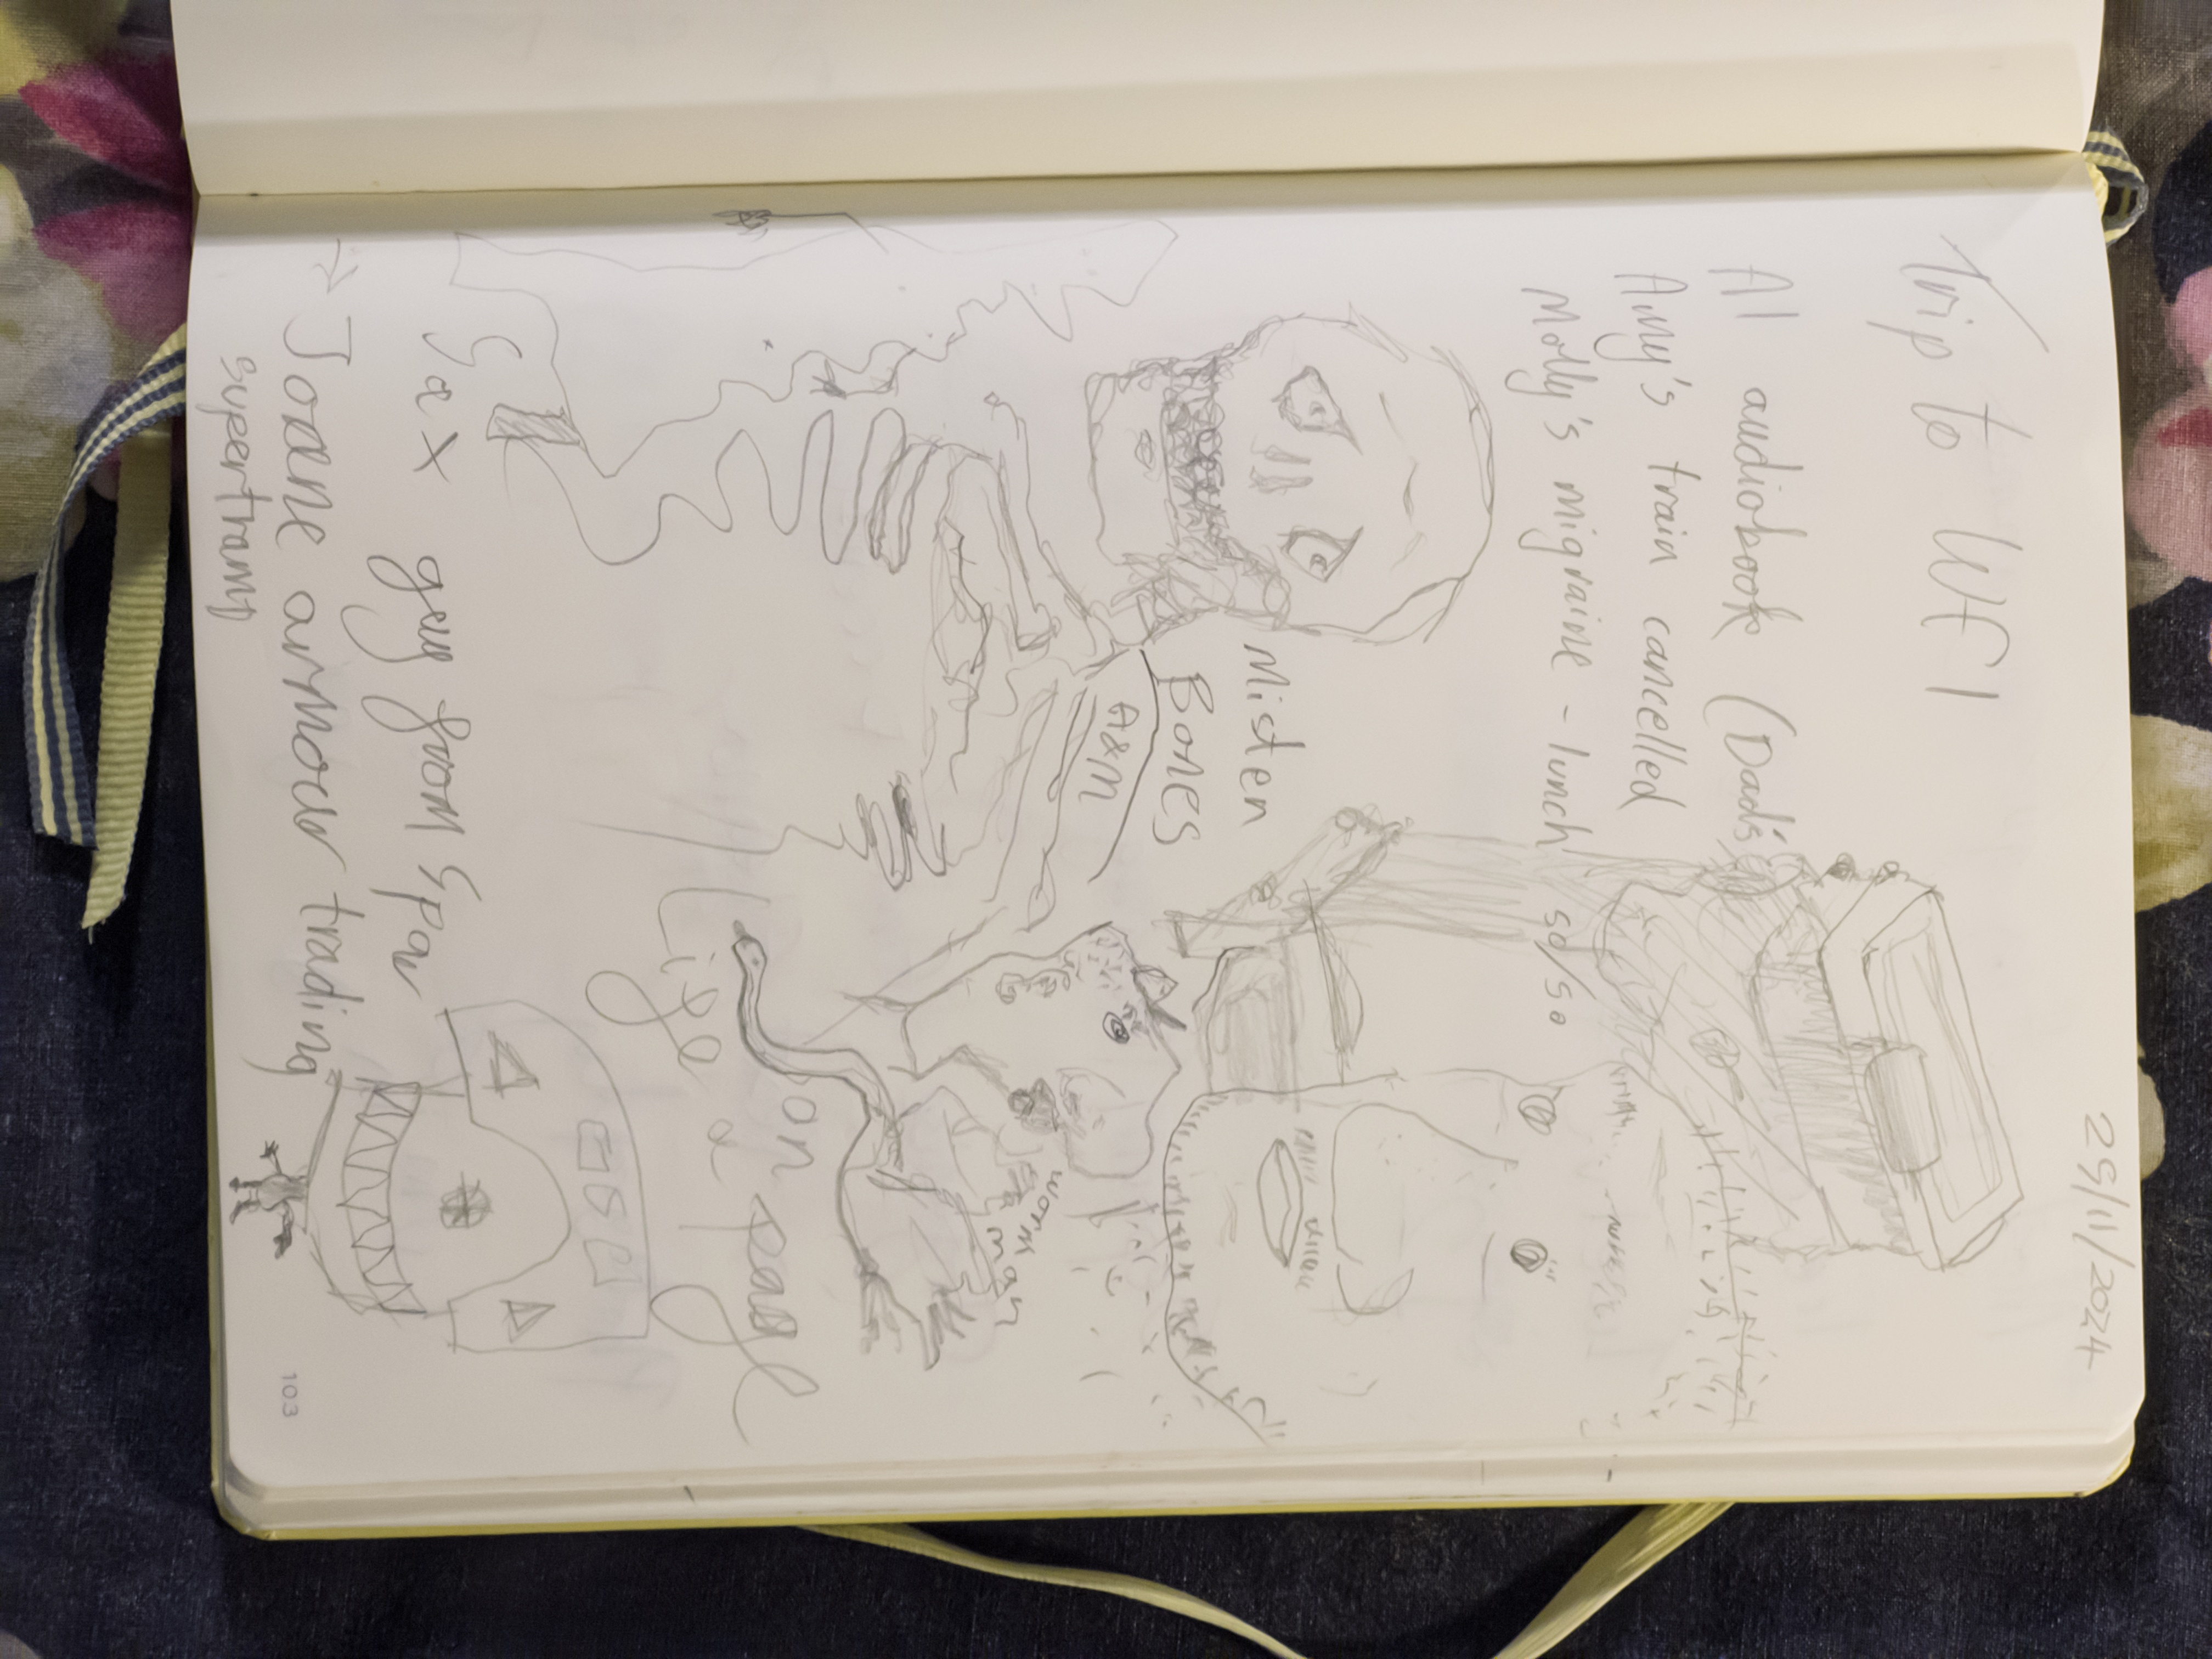 29/11/2024
Trip to WF1
AI audiobook (Dad's
Amy's train cancelled
Molly's migraine - lunch so/so
Mister
Bones
A&M
worm
man
Life on a page
Sax guy from Spar
→ Joane armour trading
supertramp
103